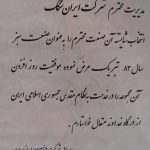 مدیریت محترم شرکت ایران محک
انتخاب شایسته آن صنعت محترم را به عنوان صنعت سبز
سال ۸۳ تبریک عرض نموده موفقیت روز افزون
آن مجموعه را در خدمت به نظام مقدس جمهوری اسلامی ایران
از درگاه خداوند متعال خواستارم.